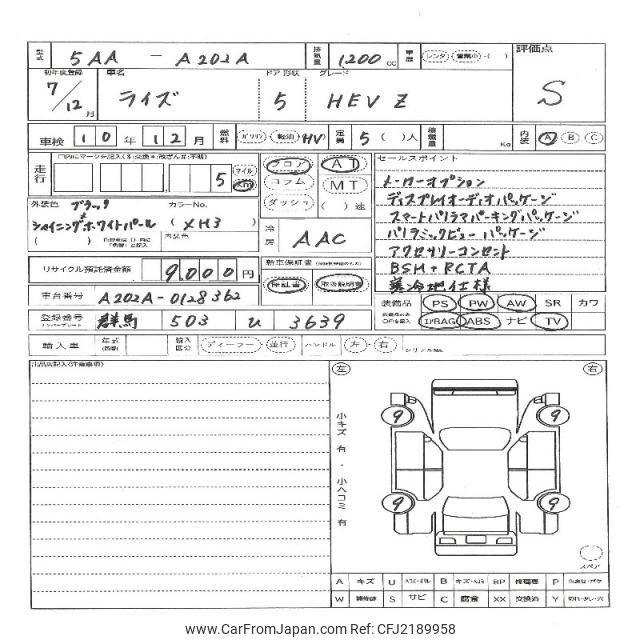 型式 5AA － A202A 排気量 1,200 cc 車歴 レンタ 評価点
初年度登録 車名 ドア 形状 グレード
7/12月 ライズ 5 HEV Z S
車検 10年12月 燃料 ガソリン 軽油 HV 定員 5( )人 積載量 Kg 内装 A B C
走行 5 マイル Km フロア AT セールスポイント
コラム MT
ダッシュ ( )速
メーカーオプション
ディスプレイオーディオパッケージ
スマートパノラマパーキングパッケージ
パノラミックビューパッケージ
アクセサリーコンセント
BSM+RCTA
寒冷地仕様
外装色 ブラック カラーNo.
シャイニングホワイトパール ( XH3 )
( ) 内装色
冷房 AAC
リサイクル預託済金額 9,000円 新車保証書
保証書 取扱説明書
車台番号 A202A-0128362 装備品 PS PW AW SR カワ
登録番号 群馬 503 む 3639 AIRBAG ABS ナビ TV
輸入車 年式 輸入区分 ディーラー 並行 ハンドル 左・右 シリアルNo.
左 右
小キズ有・小ヘコミ有
9 9
9 9
スペア
A キズ U B BP P
W S サビ C 腐食 XX 交換済 Y
www.CarFromJapan.com ID: CFJ2189958